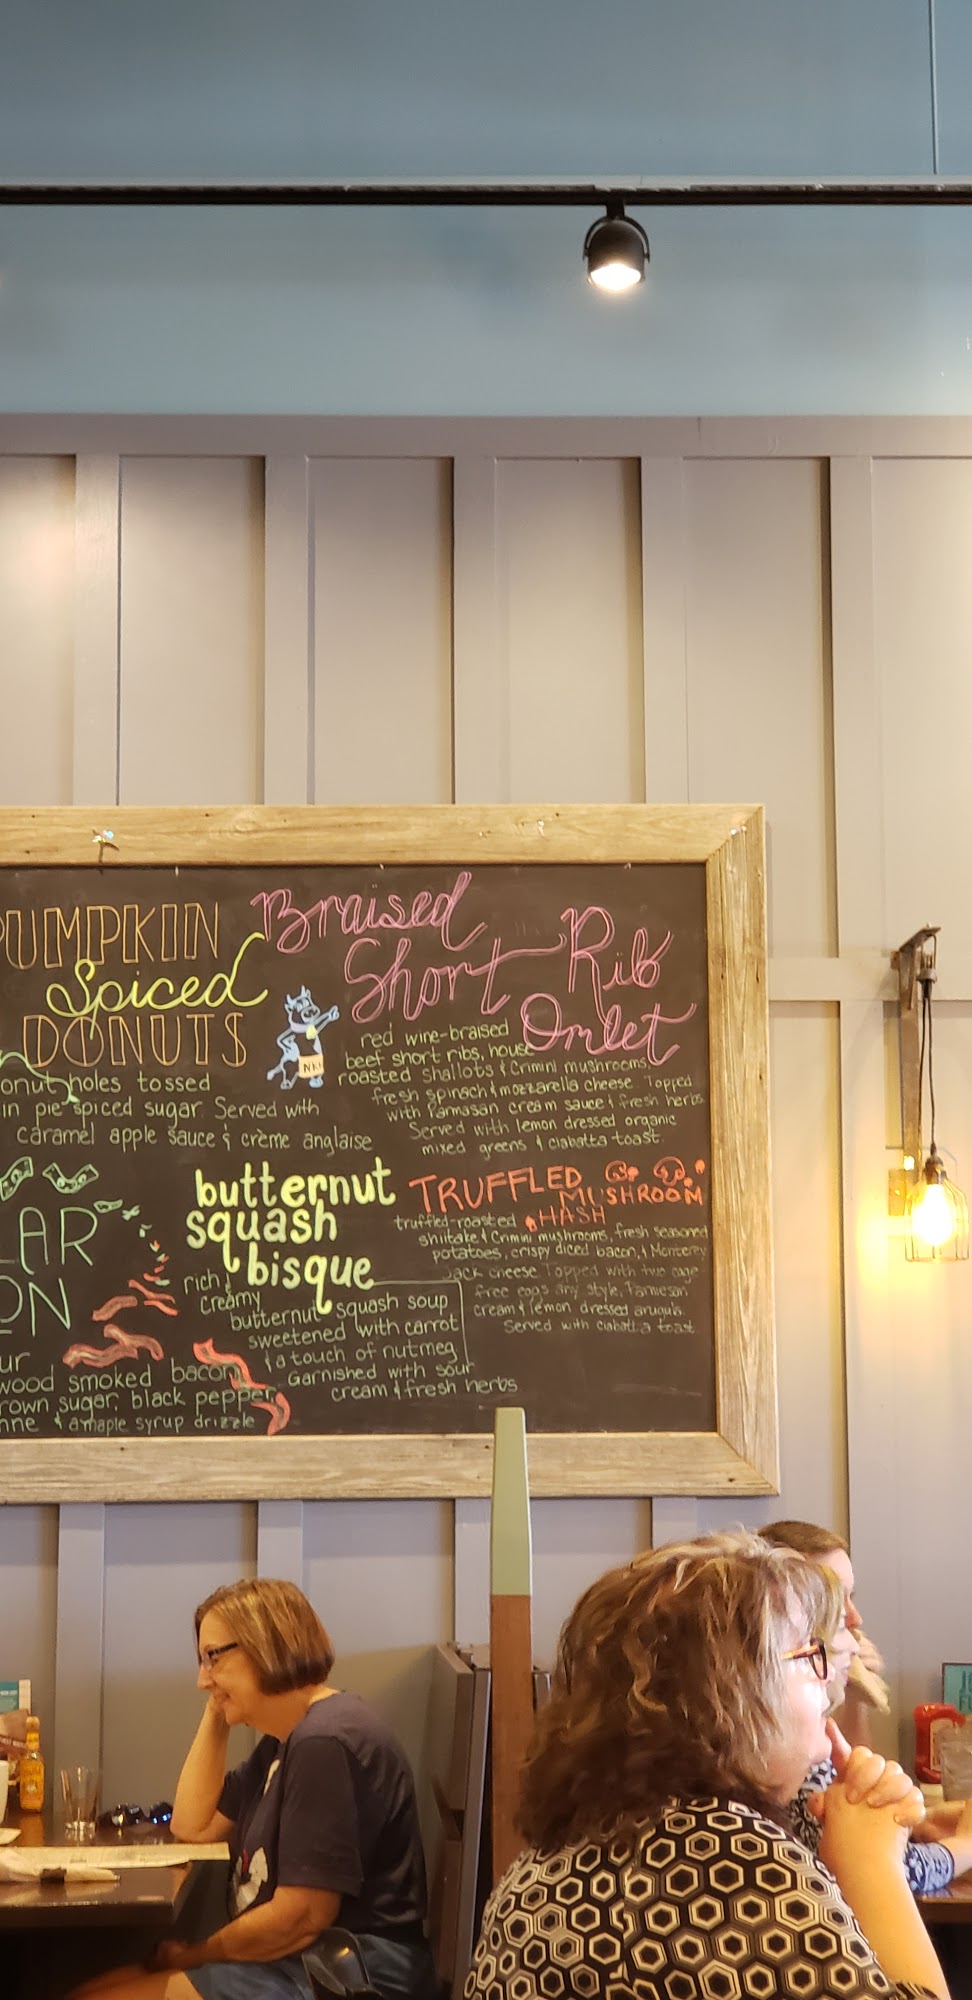 PUMPKIN
Spiced
DONUTS
onut holes tossed
in pie spiced sugar. Served with
caramel apple sauce & crème anglaise
Braised
Short Rib
Omlet
red wine-braised
beef short ribs, house
roasted shallots & Crimini mushrooms,
fresh spinach & mozzarella cheese. Topped
with Parmasan cream sauce & fresh herbs.
Served with lemon dressed organic
mixed greens & ciabatta toast.
NKI
LAR
ON
ur
wood smoked bacon,
rown sugar, black pepper,
nne & a maple syrup drizzle
butternut
squash
bisque
rich &
creamy
butternut squash soup
sweetened with carrot
& a touch of nutmeg
Garnished with sour
cream & fresh herbs
TRUFFLED
MUSHROOM
HASH
truffled-roasted
shiitake & Crimini mushrooms, fresh seasoned
potatoes, crispy diced bacon, & Monterey
Jack cheese. Topped with two cage
free eggs any style, Parmesan
cream & lemon dressed arugula.
Served with ciabatta toast